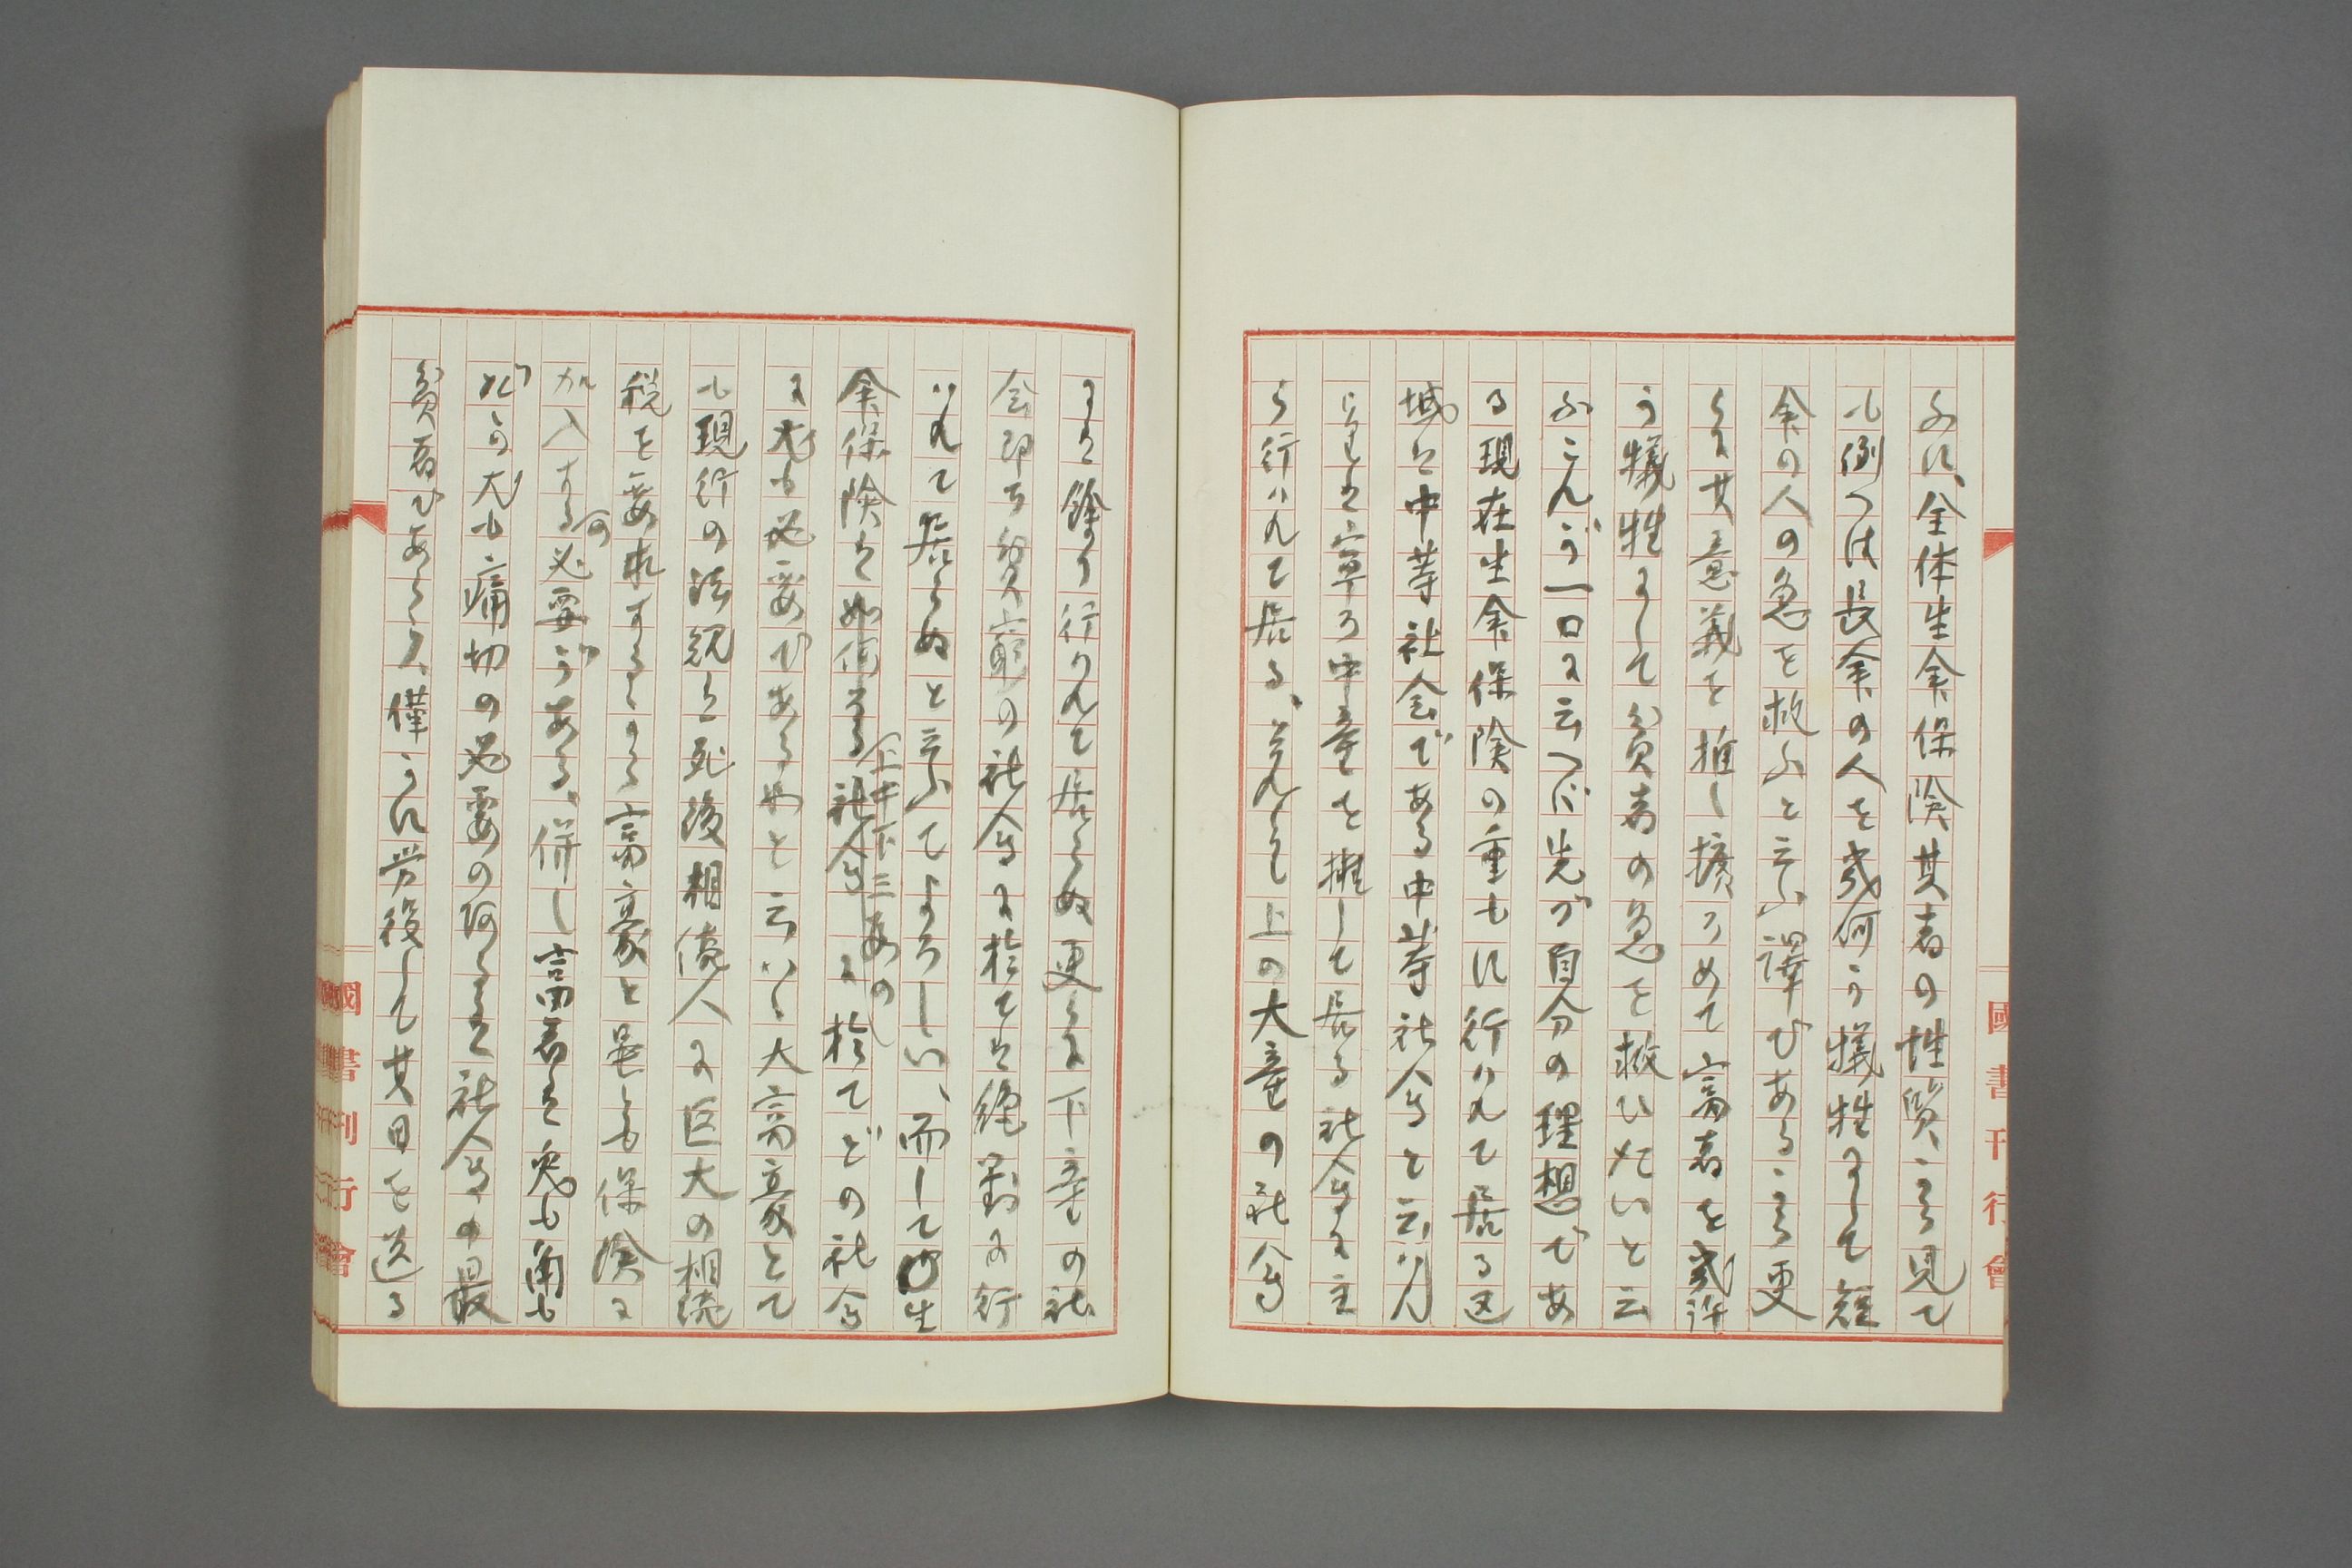 ふに、全体生命保険其者の性質から見て
も例へは長命の人を幾何か犠牲にして短
命の人の急を救ふと云ふ譯であるから更
らに其意義を推し擴めて富者を幾許
か犠牲にして貧者の急を救ひたいと云
ふこんが一口に云へば先づ自分の理想であ
る現在生命保険の重もに行はれて居る区
域は中等社会である中等社会と云はん
よりは寧ろ中産を擁して居る社会に主
ら行はれて居る、それより上の大産の社会
には餘り行はれて居らぬ更らに下産の社
会即ち貧窮の社会に於ては絶対に行
はれて居らぬと云ふてよろしい、而して生
命保険は如何なる社会
上中下三者の
に於てどの社会
に尤も必要であるかと云はゞ大富豪とて
も現行の法規は死後相続人に巨大の相続
税を要求するから富豪と雖も保険に
加入するの必要がある、併し富者は兎も角も
だが尤も痛切の必要の向は社会の最
貧者である、僅かに労役して其日を送る
國書刊行會
國書刊行會